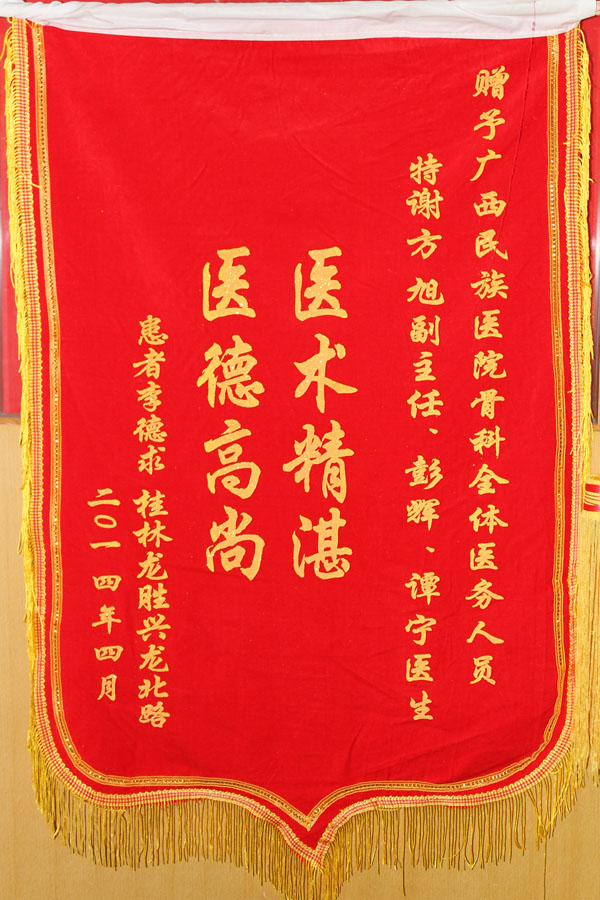 赠予广西民族医院骨科全体医务人员
特谢方旭副主任、彭辉、谭宁医生
医术精湛
医德高尚
患者李德求 桂林龙胜兴龙北路
二〇一四年四月